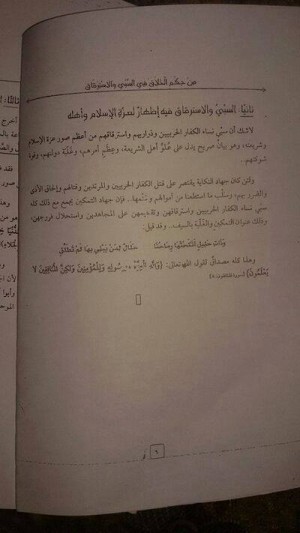 من حكم الخلاق في السبي والاسترقاق
ثانيًا: السبي والاسترقاق فيه إظهار لعزة الإسلام وأهله
لا شك أن سبي نساء الكفار الحربيين وذراريهم واسترقاقهم من أعظم صور عزة الإسلام
وشريعته، وهو بيان صريح يدل على علو أهل الشريعة، وعظم أمرهم، وغلبة دولتهم، وقوة
شوكتهم.
ولئن كان جهاد النكاية يقتصر على قتل الكفار الحربيين والمرتدين وقتالهم وإلحاق الأذى
والضرر بهم، وسلب ما استطعنا من أموالهم ومتاعها، فإن جهاد التمكين يجمع مع ذلك كله
سبي نساء الكفار الحربيين واسترقاقهن وتقسيمهن على المجاهدين واستحلال فروجهن،
وذلك عنوان التمكين والغلبة بالسيف.. وقد قيل:
وذات حليل أنكحتها رماحنا حلال لمن يبني بها لم تطلق
وهذا كله مصداق لقول الله تعالى: {وَلِلَّهِ الْعِزَّةُ وَلِرَسُولِهِ وَلِلْمُؤْمِنِينَ وَلَكِنَّ الْمُنَافِقِينَ لَا
يَعْلَمُونَ}
٦